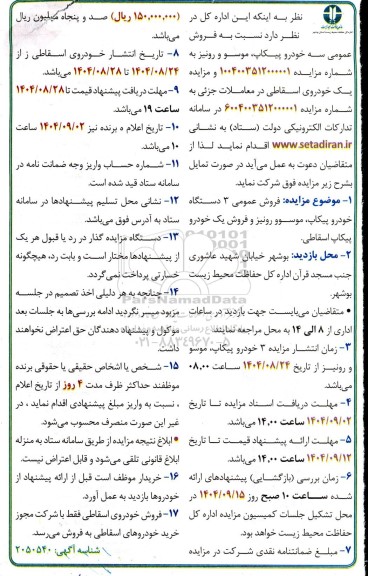 نظر به اینکه این اداره کل در
نظر دارد نسبت به فروش
عمومی سه خودرو پیکاپ، موسو و رونیز به
شماره مزایده ۱۰۰۴۰۰۳۵۱۲۰۰۰۰۰۱ و مزایده
یک خودروی اسقاطی در معاملات جزئی به
شماره ۶۰۰۴۰۰۳۵۱۲۰۰۰۰۰۱ در سامانه
تدارکات الکترونیکی دولت (ستاد) به نشانی
www.setadiran.ir اقدام نماید لذا از
متقاضیان دعوت به عمل می‌آید در صورت تمایل
بشرح زیر مزایده فوق شرکت نماید.
۱- موضوع مزایده: فروش عمومی ۳ دستگاه
خودرو پیکاپ، موسوو رونیز و فروش یک خودرو
پیکاپ اسقاطی.
۲- محل بازدید: بوشهر خیابان شهید عاشوری
جنب مسجد قرآن اداره کل حفاظت محیط زیست
بوشهر.
• متقاضیان می‌بایست جهت بازدید در ساعات
اداری از ۸ الی ۱۴ به محل مراجعه نمایند.
۳- زمان انتشار مزایده ۳ خودرو پیکاپ، موسو
و رونیز از تاریخ ۱۴۰۴/۰۸/۲۴ ساعت ۰۸.۰۰
می‌باشد.
۴- مهلت دریافت اسناد مزایده تا تاریخ
۱۴۰۴/۰۹/۰۲ ساعت ۱۴.۰۰ می‌باشد.
۵- مهلت ارائه پیشنهاد قیمت تا تاریخ
۱۴۰۴/۰۹/۱۲ ساعت ۱۴.۰۰ می‌باشد.
۶- زمان بررسی (بازگشایی) پیشنهادهای ارائه
شده ساعت ۱۰ صبح روز ۱۴۰۴/۰۹/۱۵ در
محل تشکیل جلسات کمیسیون مزایده اداره کل
حفاظت محیط زیست خواهد بود.
۷- مبلغ ضمانتنامه نقدی شرکت در مزایده
(۱۵۰,۰۰۰,۰۰۰ ریال) صد و پنجاه میلیون ریال
می‌باشد.
۸- تاریخ انتشار خودروی اسقاطی ز از
۱۴۰۴/۰۸/۲۴ تا ۱۴۰۴/۰۸/۲۸ می‌باشد.
۹- مهلت دریافت پیشنهاد قیمت تا ۱۴۰۴/۰۸/۲۸
ساعت ۱۹ می‌باشد.
۱۰- تاریخ اعلام ه برنده نیز ۱۴۰۴/۰۹/۰۲ ساعت
۱۰ می‌باشد.
۱۱- شماره حساب واریز وجه ضمانت نامه در
سامانه ستاد قید شده است.
۱۲- نشانی محل تسلیم پیشنهادها در سامانه
ستاد به آدرس فوق می‌باشد.
۱۳- دستگاه مزایده گذار در رد یا قبول هر یک
از پیشنهادها مختار است و بابت رد، هیچگونه
خسارتی پرداخت نمی‌گردد.
۱۴- چنانچه به هر دلیلی اخذ تصمیم در جلسه
مزبور میسر نگردید ادامه بررسی‌ها به جلسات بعد
موکول و پیشنهاد دهندگان حق اعتراض نخواهند
داشت.
۱۵- شخص یا اشخاص حقیقی یا حقوقی برنده
موظفند حداکثر ظرف مدت ۴ روز از تاریخ اعلام
، نسبت به واریز مبلغ پیشنهادی اقدام نماید ، در
غیر این صورت منصرف محسوب می‌شود.
• ابلاغ نتیجه مزایده از طریق سامانه ستاد به منزله
ابلاغ قانونی تلقی می‌شود و قابل اعتراض نیست.
۱۶- خریدار موظف است قبل از ارائه پیشنهاد از
خودروها بازدید به عمل آورد.
۱۷- فروش خودروی اسقاطی فقط با شرکت مجوز
خرید خودروهای اسقاطی به فروش می‌رسد.
شناسه آگهی: ۲۰۵۰۵۴۰
ParsNamadData
۰۲۱-۸۸۳۴۹۶۷۰-۵